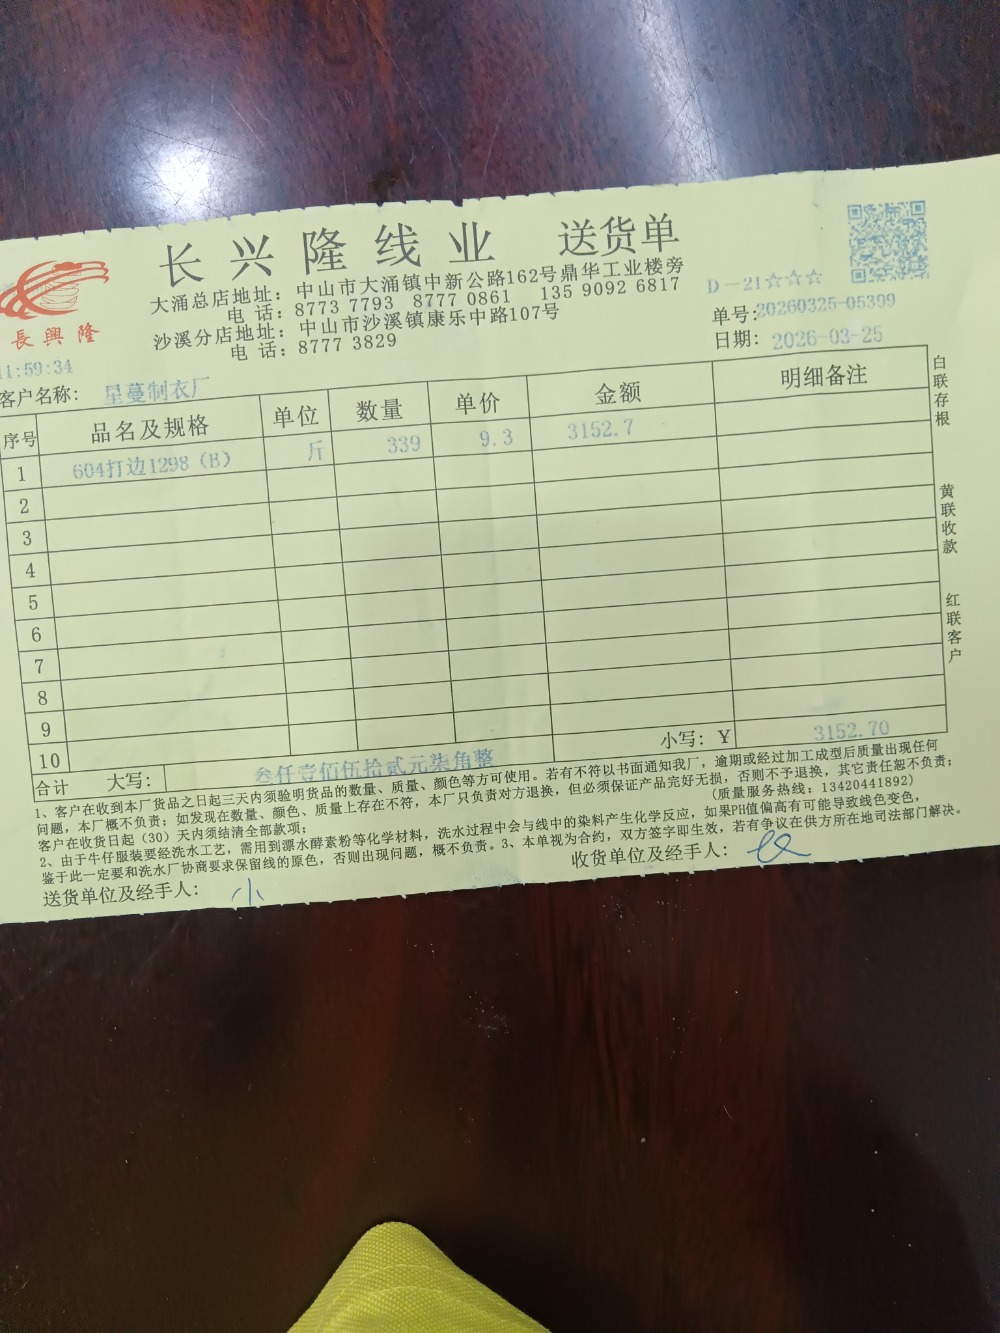 长兴隆线业 送货单
大涌总店地址：中山市大涌镇中新公路162号鼎华工业楼旁
电 话：8773 7793 8777 0861 135 9092 6817
沙溪分店地址：中山市沙溪镇康乐中路107号
电 话：8777 3829
長興隆
D-21☆☆☆
单号:20260325-05399
日期: 2026-03-25
11:59:34
客户名称: 星蔓制衣厂
序号 品名及规格 单位 数量 单价 金额 明细备注
1 604打边1298（B） 斤 339 9.3 3152.7
2
3
4
5
6
7
8
9
10
合计 大写: 叁仟壹佰伍拾贰元柒角整 小写: Y 3152.70
白联存根
黄联收款
红联客户
1、客户在收到本厂货品之日起三天内须验明货品的数量、质量、颜色等方可使用。若有不符以书面通知我厂，逾期或经过加工成型后质量出现任何
问题，本厂概不负责；如发现在数量、颜色、质量上存在不符，本厂只负责对方退换，但必须保证产品完好无损，否则不予退换，其它责任恕不负责；
客户在收货日起（30）天内须结清全部款项； (质量服务热线：13420441892)
2、由于牛仔服装要经洗水工艺，需用到漂水酵素粉等化学材料，洗水过程中会与线中的染料产生化学反应，如果PH值偏高有可能导致线色变色，
鉴于此一定要和洗水厂协商要求保留线的原色，否则出现问题，概不负责。3、本单视为合约，双方签字即生效，若有争议在供方所在地司法部门解决。
送货单位及经手人： 小
收货单位及经手人：